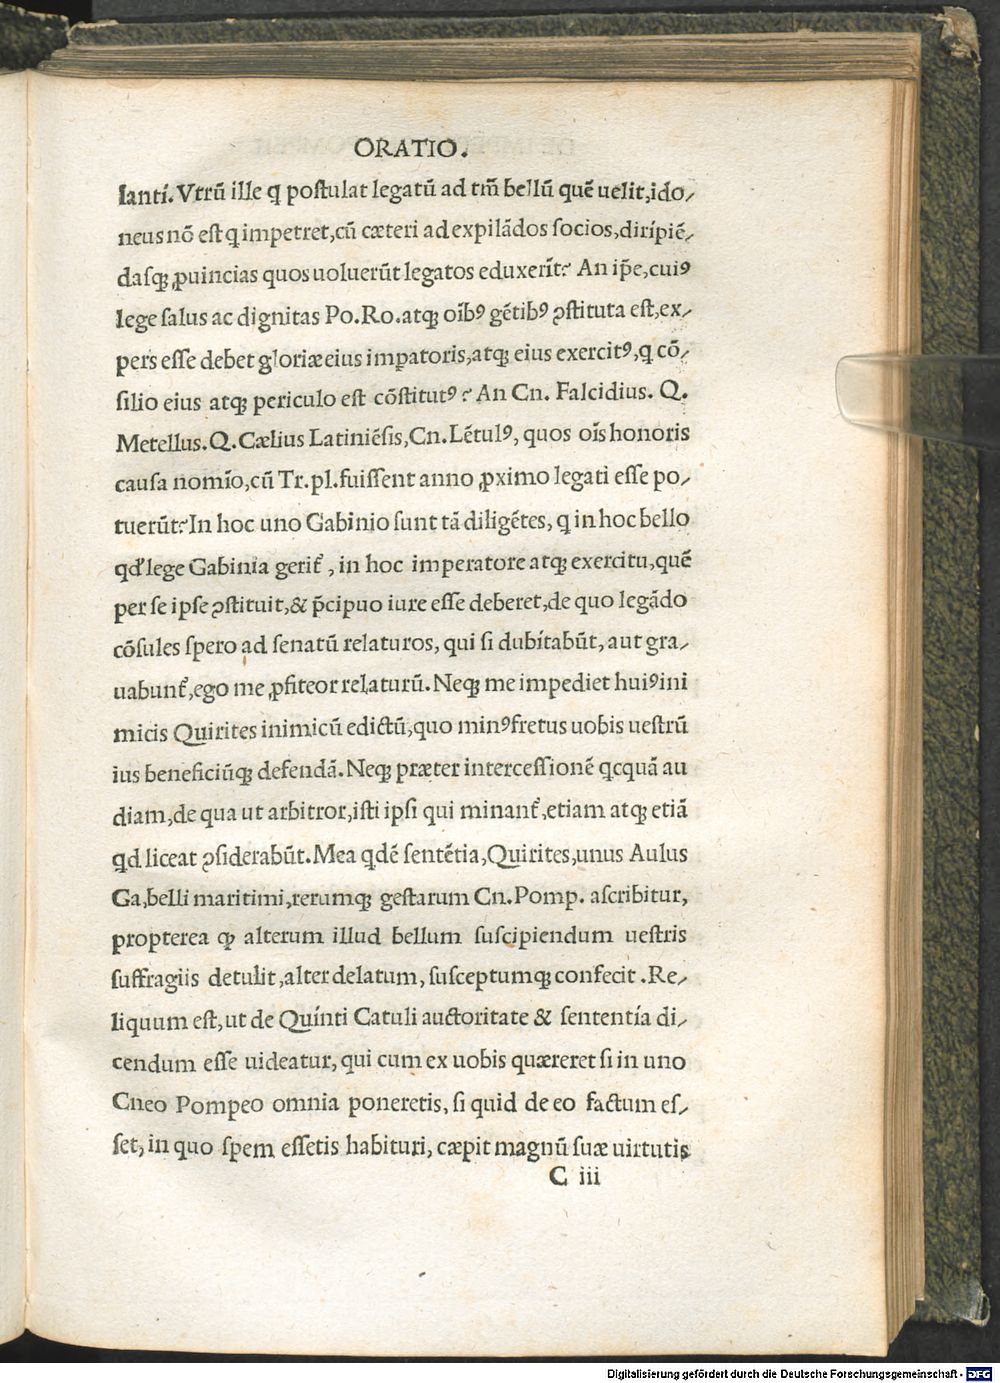 ORATIO.
lanti. Vtrū ille q̱ postulat legatū ad tm̄ bellū quē uelit, ido⸗
neus nō est q impetret, cū cæteri ad expilādos socios, diripiē⸗
dasq; ꝓuincias quos uoluerūt legatos eduxerīt? An ip̄e, cuiꝰ
lege salus ac dignitas Po. Ro. atq; oībꝰ gētibꝰ ꝯstituta est, ex⸗
pers esse debet gloriæ eius imꝑatoris, atq; eius exercitꝰ, q cō⸗
silio eius atq; periculo est cōstitutꝰ? An Cn. Falcidius. Q.
Metellus. Q. Cælius Latiniēsis, Cn. Lētulꝰ, quos oīs honoris
causa nomīo, cū Tr. pl. fuissent anno ꝓximo legati esse po⸗
tuerūt? In hoc uno Gabinio sunt tā diligētes, q in hoc bello
qd' lege Gabinia gerit᷑, in hoc imperatore atq; exercitu, quē
per se ipse ꝯstituit, & p̄cipuo iure esse deberet, de quo legādo
cōsules spero ad senatū relaturos, qui si dubitabūt, aut gra⸗
uabunt᷑, ego me ꝓfiteor relaturū. Neq; me impediet huiꝰ ini
micis Quirites inimicū edictū, quo minꝰ fretus uobis uestrū
ius beneficiūq; defendā. Neq; præter intercessionē qcquā au
diam, de qua ut arbitror, isti ipsi qui minant᷑, etiam atq; etiā
qd liceat ꝯsiderabūt. Mea qdē sentētia, Quirites, unus Aulus
Ga, belli maritimi, rerumq; gestarum Cn. Pomp. ascribitur,
propterea ꝙ alterum illud bellum suscipiendum uestris
suffragiis detulit, alter delatum, susceptumq; confecit. Re⸗
liquum est, ut de Quinti Catuli auctoritate & sententia di⸗
cendum esse uideatur, qui cum ex uobis quæreret si in uno
Cneo Pompeo omnia poneretis, si quid de eo factum es⸗
set, in quo spem essetis habituri, cæpit magnū suæ uirtutis
C iii
Digitalisierung gefördert durch die Deutsche Forschungsgemeinschaft - DFG